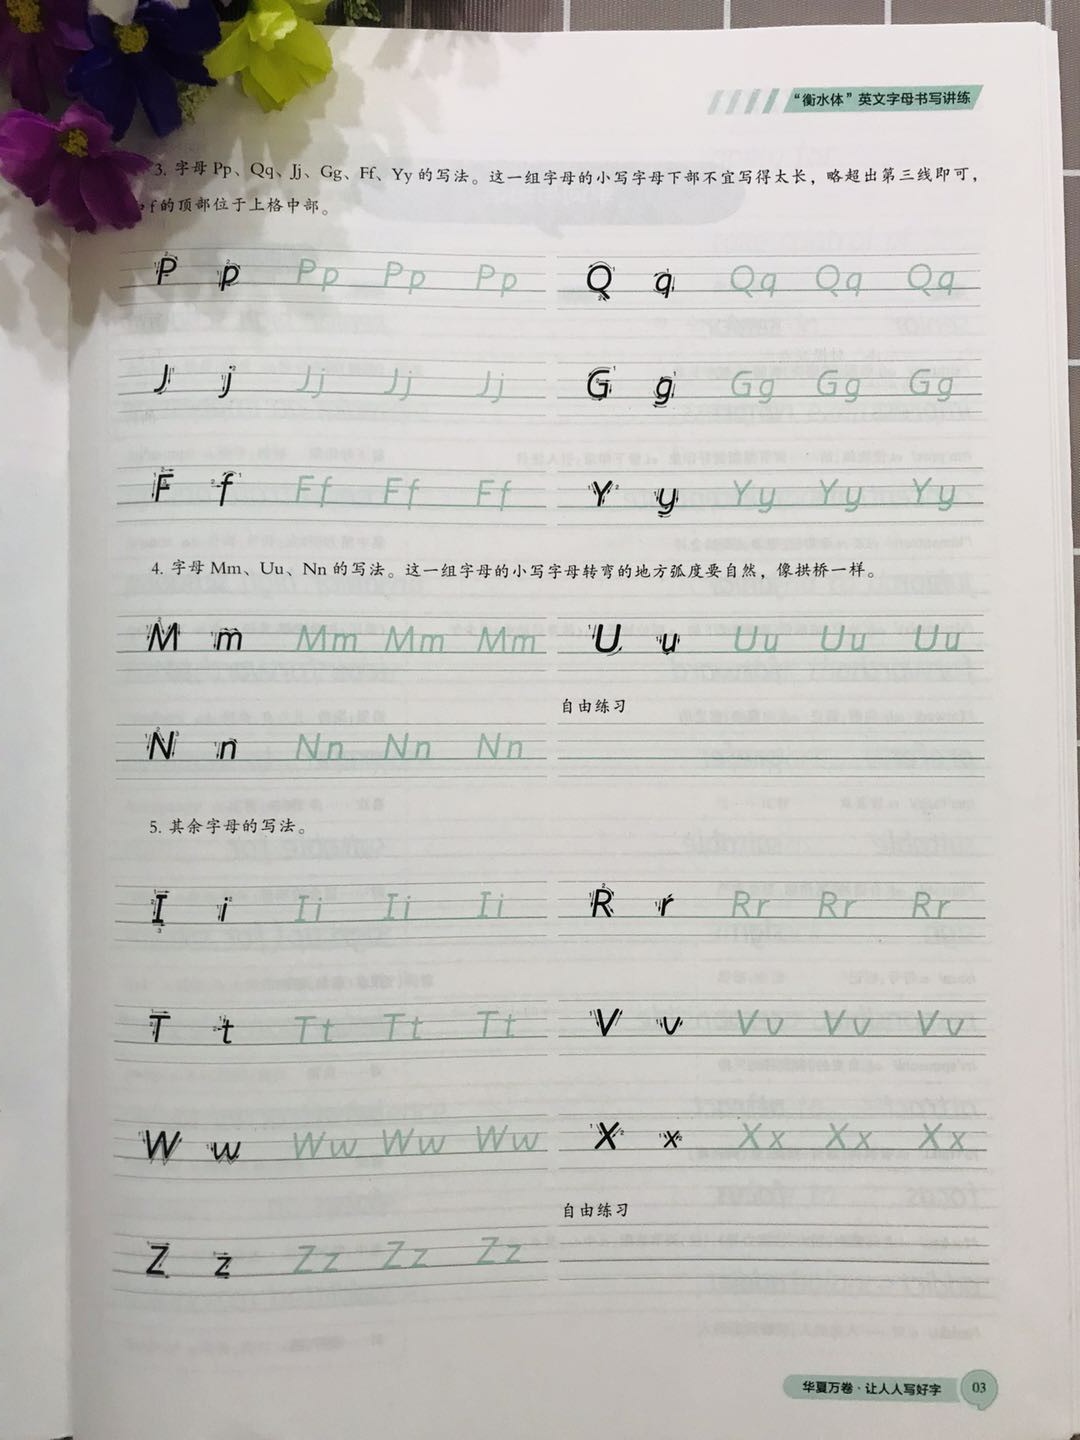 “衡水体”英文字母书写讲练
3. 字母 Pp、Qq、Jj、Gg、Ff、Yy 的写法。这一组字母的小写字母下部不宜写得太长，略超出第三线即可，
f 的顶部位于上格中部。
P p Pp Pp Pp Q q Qq Qq Qq
J j Jj Jj Jj G g Gg Gg Gg
F f Ff Ff Ff Y y Yy Yy Yy
4. 字母 Mm、Uu、Nn 的写法。这一组字母的小写字母转弯的地方弧度要自然，像拱桥一样。
M m Mm Mm Mm U u Uu Uu Uu
自由练习
N n Nn Nn Nn
5. 其余字母的写法。
I i Ii Ii Ii R r Rr Rr Rr
T t Tt Tt Tt V v Vv Vv Vv
W w Ww Ww Ww X x Xx Xx Xx
自由练习
Z z Zz Zz Zz
华夏万卷·让人人写好字 03